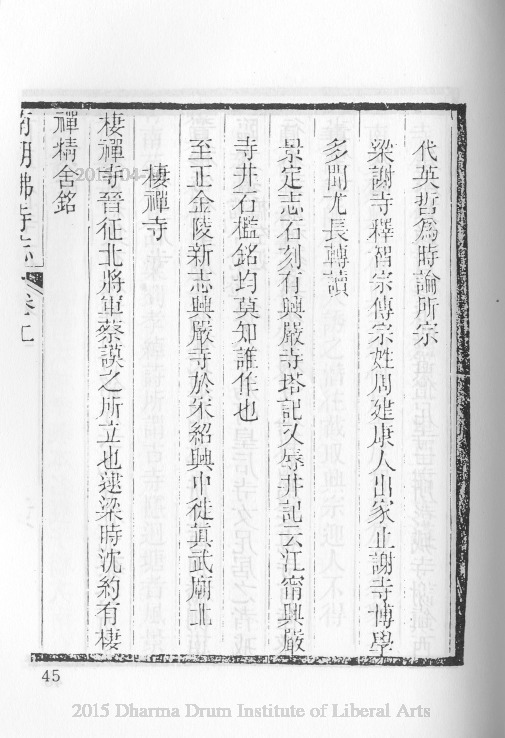 代英哲爲時論所宗
梁謝寺釋智宗傳宗姓周建康人出家止謝寺博學
多聞尤長轉讀
景定志石刻有興嚴寺塔記又辱井記云江甯興嚴
寺井石檻銘均莫知誰作也
至正金陵新志興嚴寺於宋紹興中徙眞武廟北
棲禪寺
棲禪寺晉征北將軍蔡謨之所立也逮梁時沈約有棲
禪精舍銘
南朝佛寺志 卷上
45
2015 Dharma Drum Institute of Liberal Arts